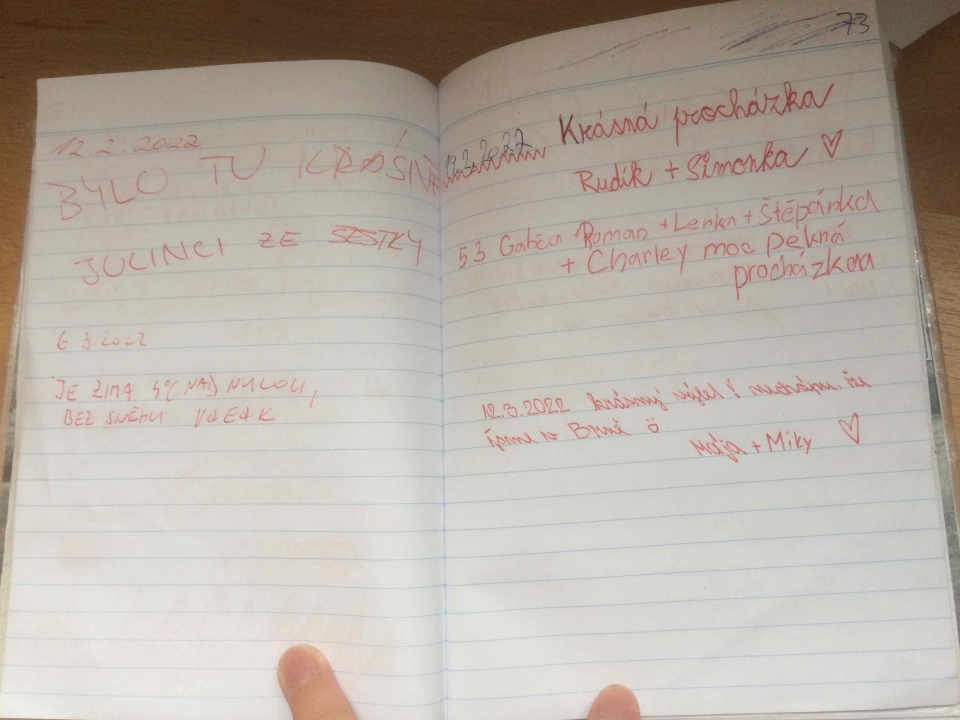 12.2.2022
BYLO TU KRÁSNĚ
JOLINCI ZE SESTKY
6 3 2022
JE ZIMA 4°C NAD NULOU,
BEZ SNĚHU V&E&K
73
Krásná procházka
Rudík + Simonka ♡
5 3 Gabča + Roman + Lenka + Štěpánka
+ Charley moc pekná
procházkaa
12.3.2022 krásný výlet! že
jsme v Brně ö
Mája + Miky ♡